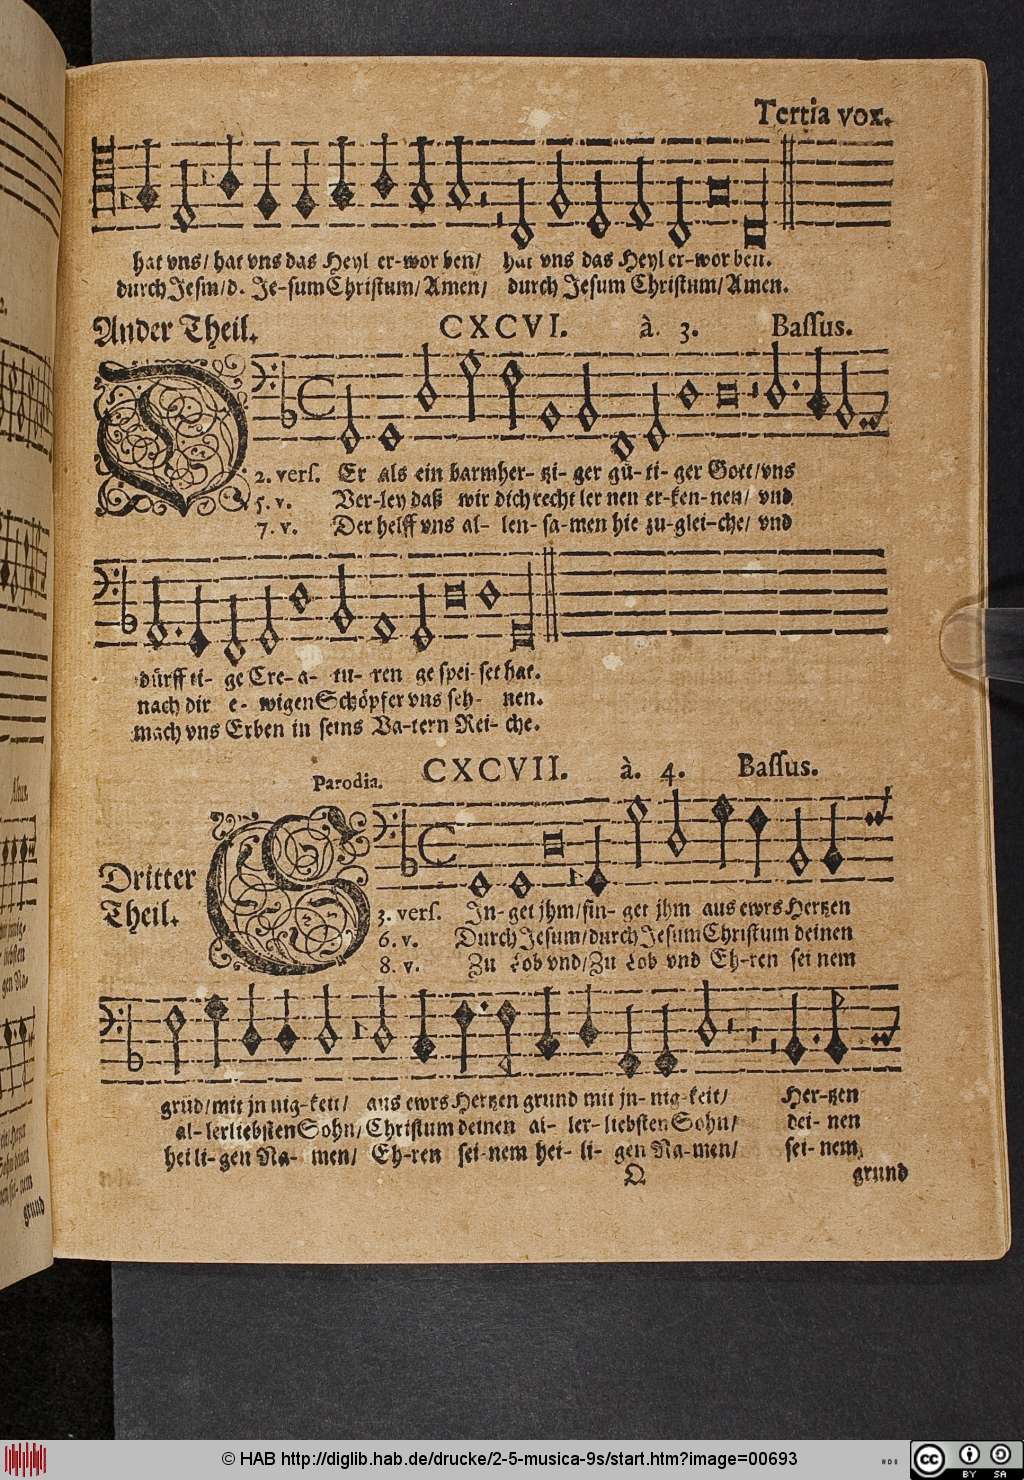 Tertia vox.
hat vns/ hat vns das Heyl er-wor ben/ hat vns das Heyl er-wor ben.
durch Jesm/d. Je-sum Christum/Amen/ durch Jesum Christum/Amen.
Ander Theil. CXCVI. à. 3. Bassus.
2. vers. DEr als ein barmher- tzi- ger gü- ti- ger Gott/vns
5. v. Ver-ley daß wir dich recht ler nen er-ken-nen/ vnd
7. v. Der helff vns al- len- sa-men hie zu-glei-che/ vnd
dürff ti- ge Cre-a- tu- ren ge spei-set hat.
nach dir e- wigen Schöpfer vns seh- nen.
mach vns Erben in seins Va-tern Rei- che.
Parodia. CXCVII. à. 4. Bassus.
Dritter
Theil.
3. vers. SIn-get jhm/sin- get jhm aus ewrs Hertzen
6. v. Durch Jesum/durch Jesum Christum deinen
8. v. Zu Lob vnd/Zu Lob vnd Eh-ren sei nem
grüd/mit jn nig-keit/ aus ewrs Hertzen grund mit jn-nig-keit/ Her-tzen
al-lerliebsten Sohn/Christum deinen al- ler-liebsten Sohn/ dei- nen
hei li- gen Na- men/ Eh-ren sei-nem hei- li- gen Na-men/ sei- nem
Q grund
2.
Altus.
grund
© HAB http://diglib.hab.de/drucke/2-5-musica-9s/start.htm?image=00693
cc BY SA